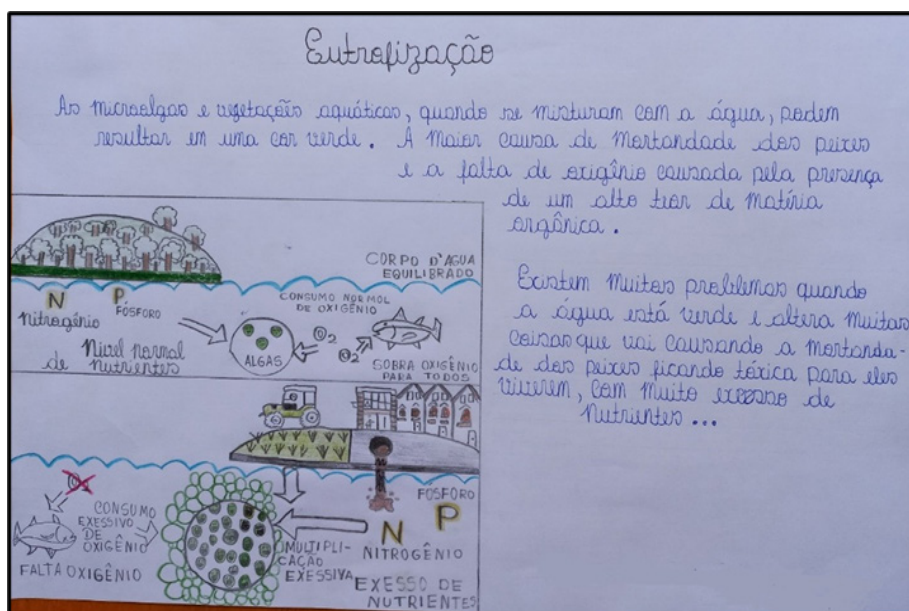 Eutrofização
As microalgas e vegetações aquáticas, quando se misturam com a água, podem
resultar em uma cor verde. A maior causa de mortandade dos peixes
e a falta de oxigênio causada pela presença
de um alto teor de matéria
orgânica.
Existem muitos problemas quando
a água está verde e altera muitas
coisas que vai causando a mortanda-
de dos peixes ficando tóxica para eles
viverem, com muito excesso de
nutrientes...
CORPO D'ÁGUA
EQUILIBRADO
N P
Nitrogênio
FÓSFORO
Nível normal
de nutrientes
ALGAS
CONSUMO NORMOL
DE OXIGÊNIO
O2
O2
SOBRA OXIGÊNIO
PARA TODOS
O2
CONSUMO
EXESSIVO
DE
OXIGÊNIO
FALTA OXIGÊNIO
MULTIPLI-
CAÇÃO
EXESSIVA
FÓSFORO
N P
NITROGÊNIO
EXESSO DE
NUTRIENTES